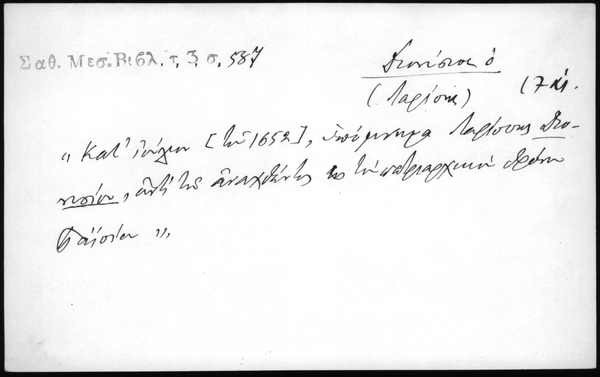 Σαθ. Μεσ. Βιβλ. τ. 3, σ. 587
Διονύσιος ὁ
(Λαρίσης) 17 αἰ.
„ Κατ' ἰούλιον [τοῦ 1652], ὑπόμνημα Λαρίσσης Διο-
νυσίου, ἀντὶ τοῦ ἀναχθέντος εἰς τὸν πατριαρχικὸν θρόνον
Παϊσίου „